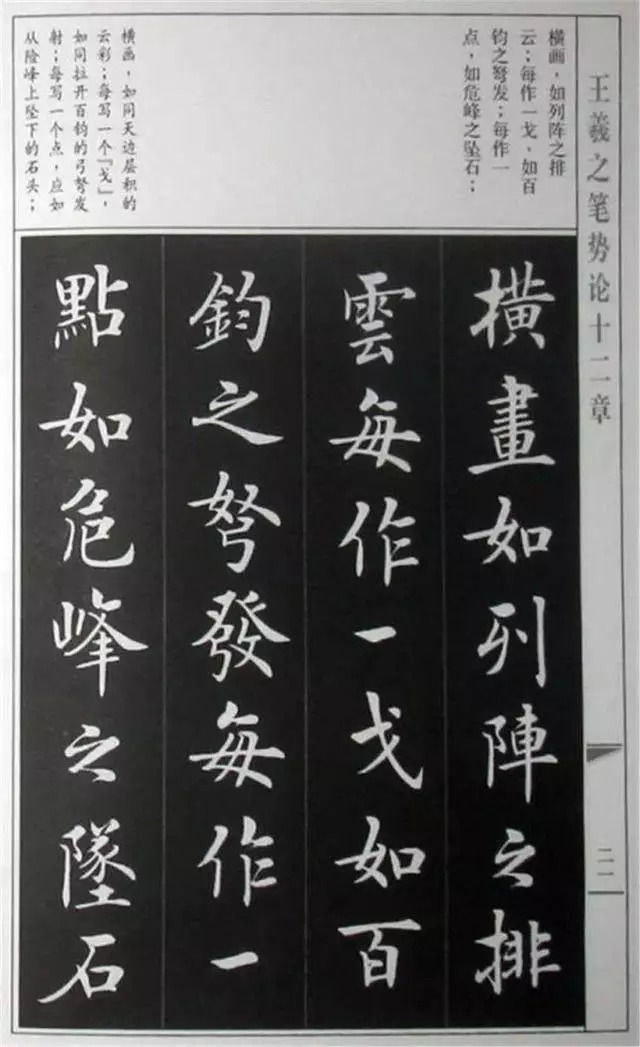 王羲之笔势论十二章
横画，如列阵之排
云；每作一戈，如百
钧之弩发；每作一
点，如危峰之坠石；
横画，如同天边层积的
云彩；每写一个“戈”，
如同拉开百钧的弓弩发
射；每写一个点，应如
从险峰上坠下的石头；
橫畫如列陣之排
雲每作一戈如百
鈞之弩發每作一
點如危峰之墜石
二一